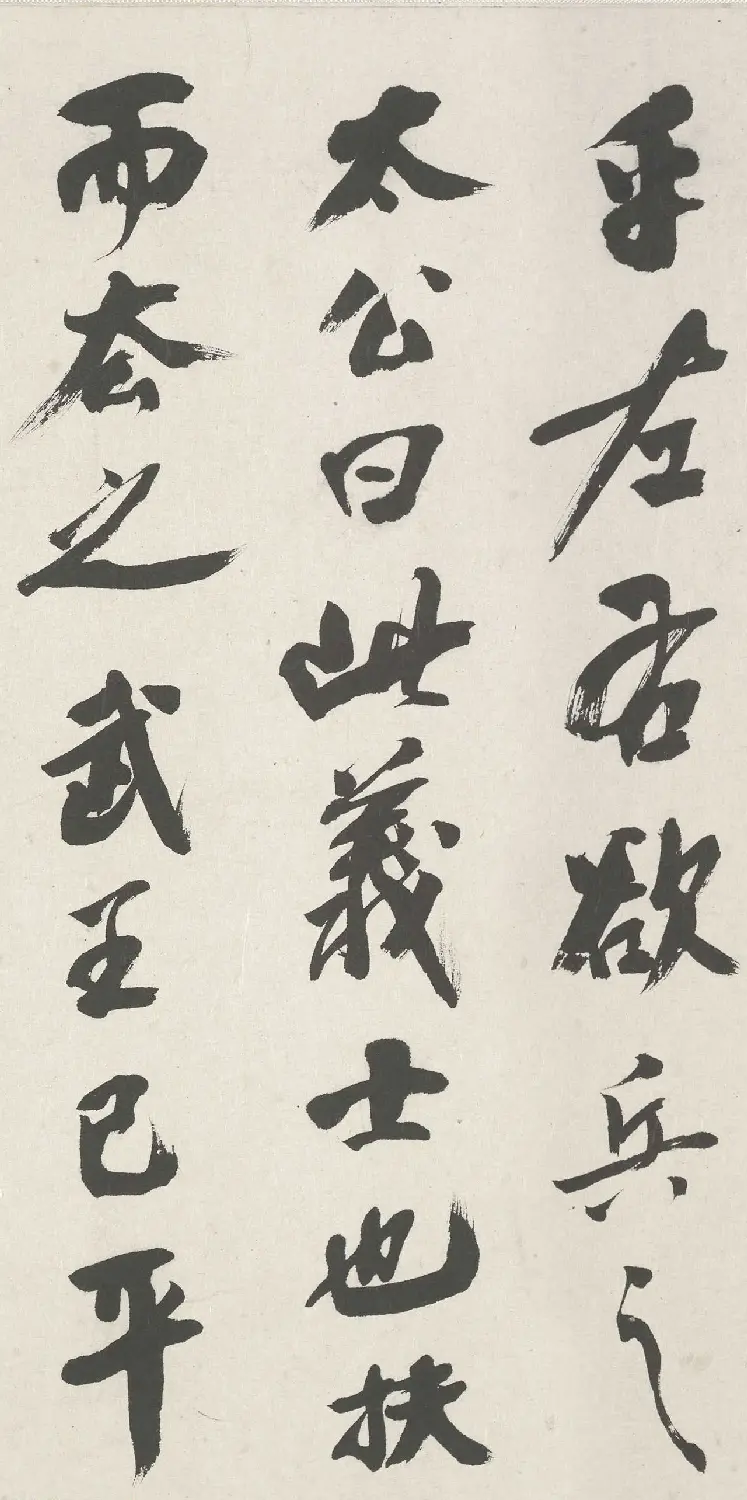 乎左右欲兵之
太公曰此義士也扶
而去之武王已平